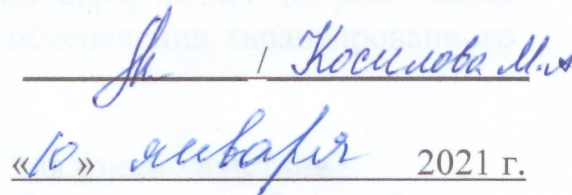 / Косилова М.А
«10» января 2021 г.